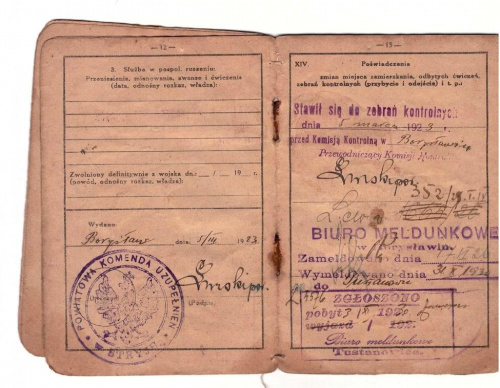 — 12 —
3. Służba w pospol. ruszeniu:
Przeniesienia, mianowania, awanse i ćwiczenia
(data, odnośny rozkaz, władza):
Zwolniony definitywnie z wojska dn. / 19 r.
(powód, odnośny rozkaz, władza):
Wydano:
Borysław dnia: 5/III 1923
(Podpis)
POWIATOWA KOMENDA UZUPEŁNIEŃ
STRYJ
— 13 —
XIV Poświadczenia
zmian miejsca zamieszkania, odbytych ćwiczeń,
zebrań kontrolnych (przybycie i odejście) i t. p.:
Stawił się do zebrań kontrolnych
dnia 5 marca 1923.
przed Komisją Kontrolną w Borysławiu
Przewodniczący Komisji
352/
BIURO MELDUNKOWE
w Borysławiu.
Zameldowano dnia
Wymeldowano dnia
do
ZGŁOSZONO
pobyt 3
wyjazd 192
Biuro meldunkowe
Tustanowice.